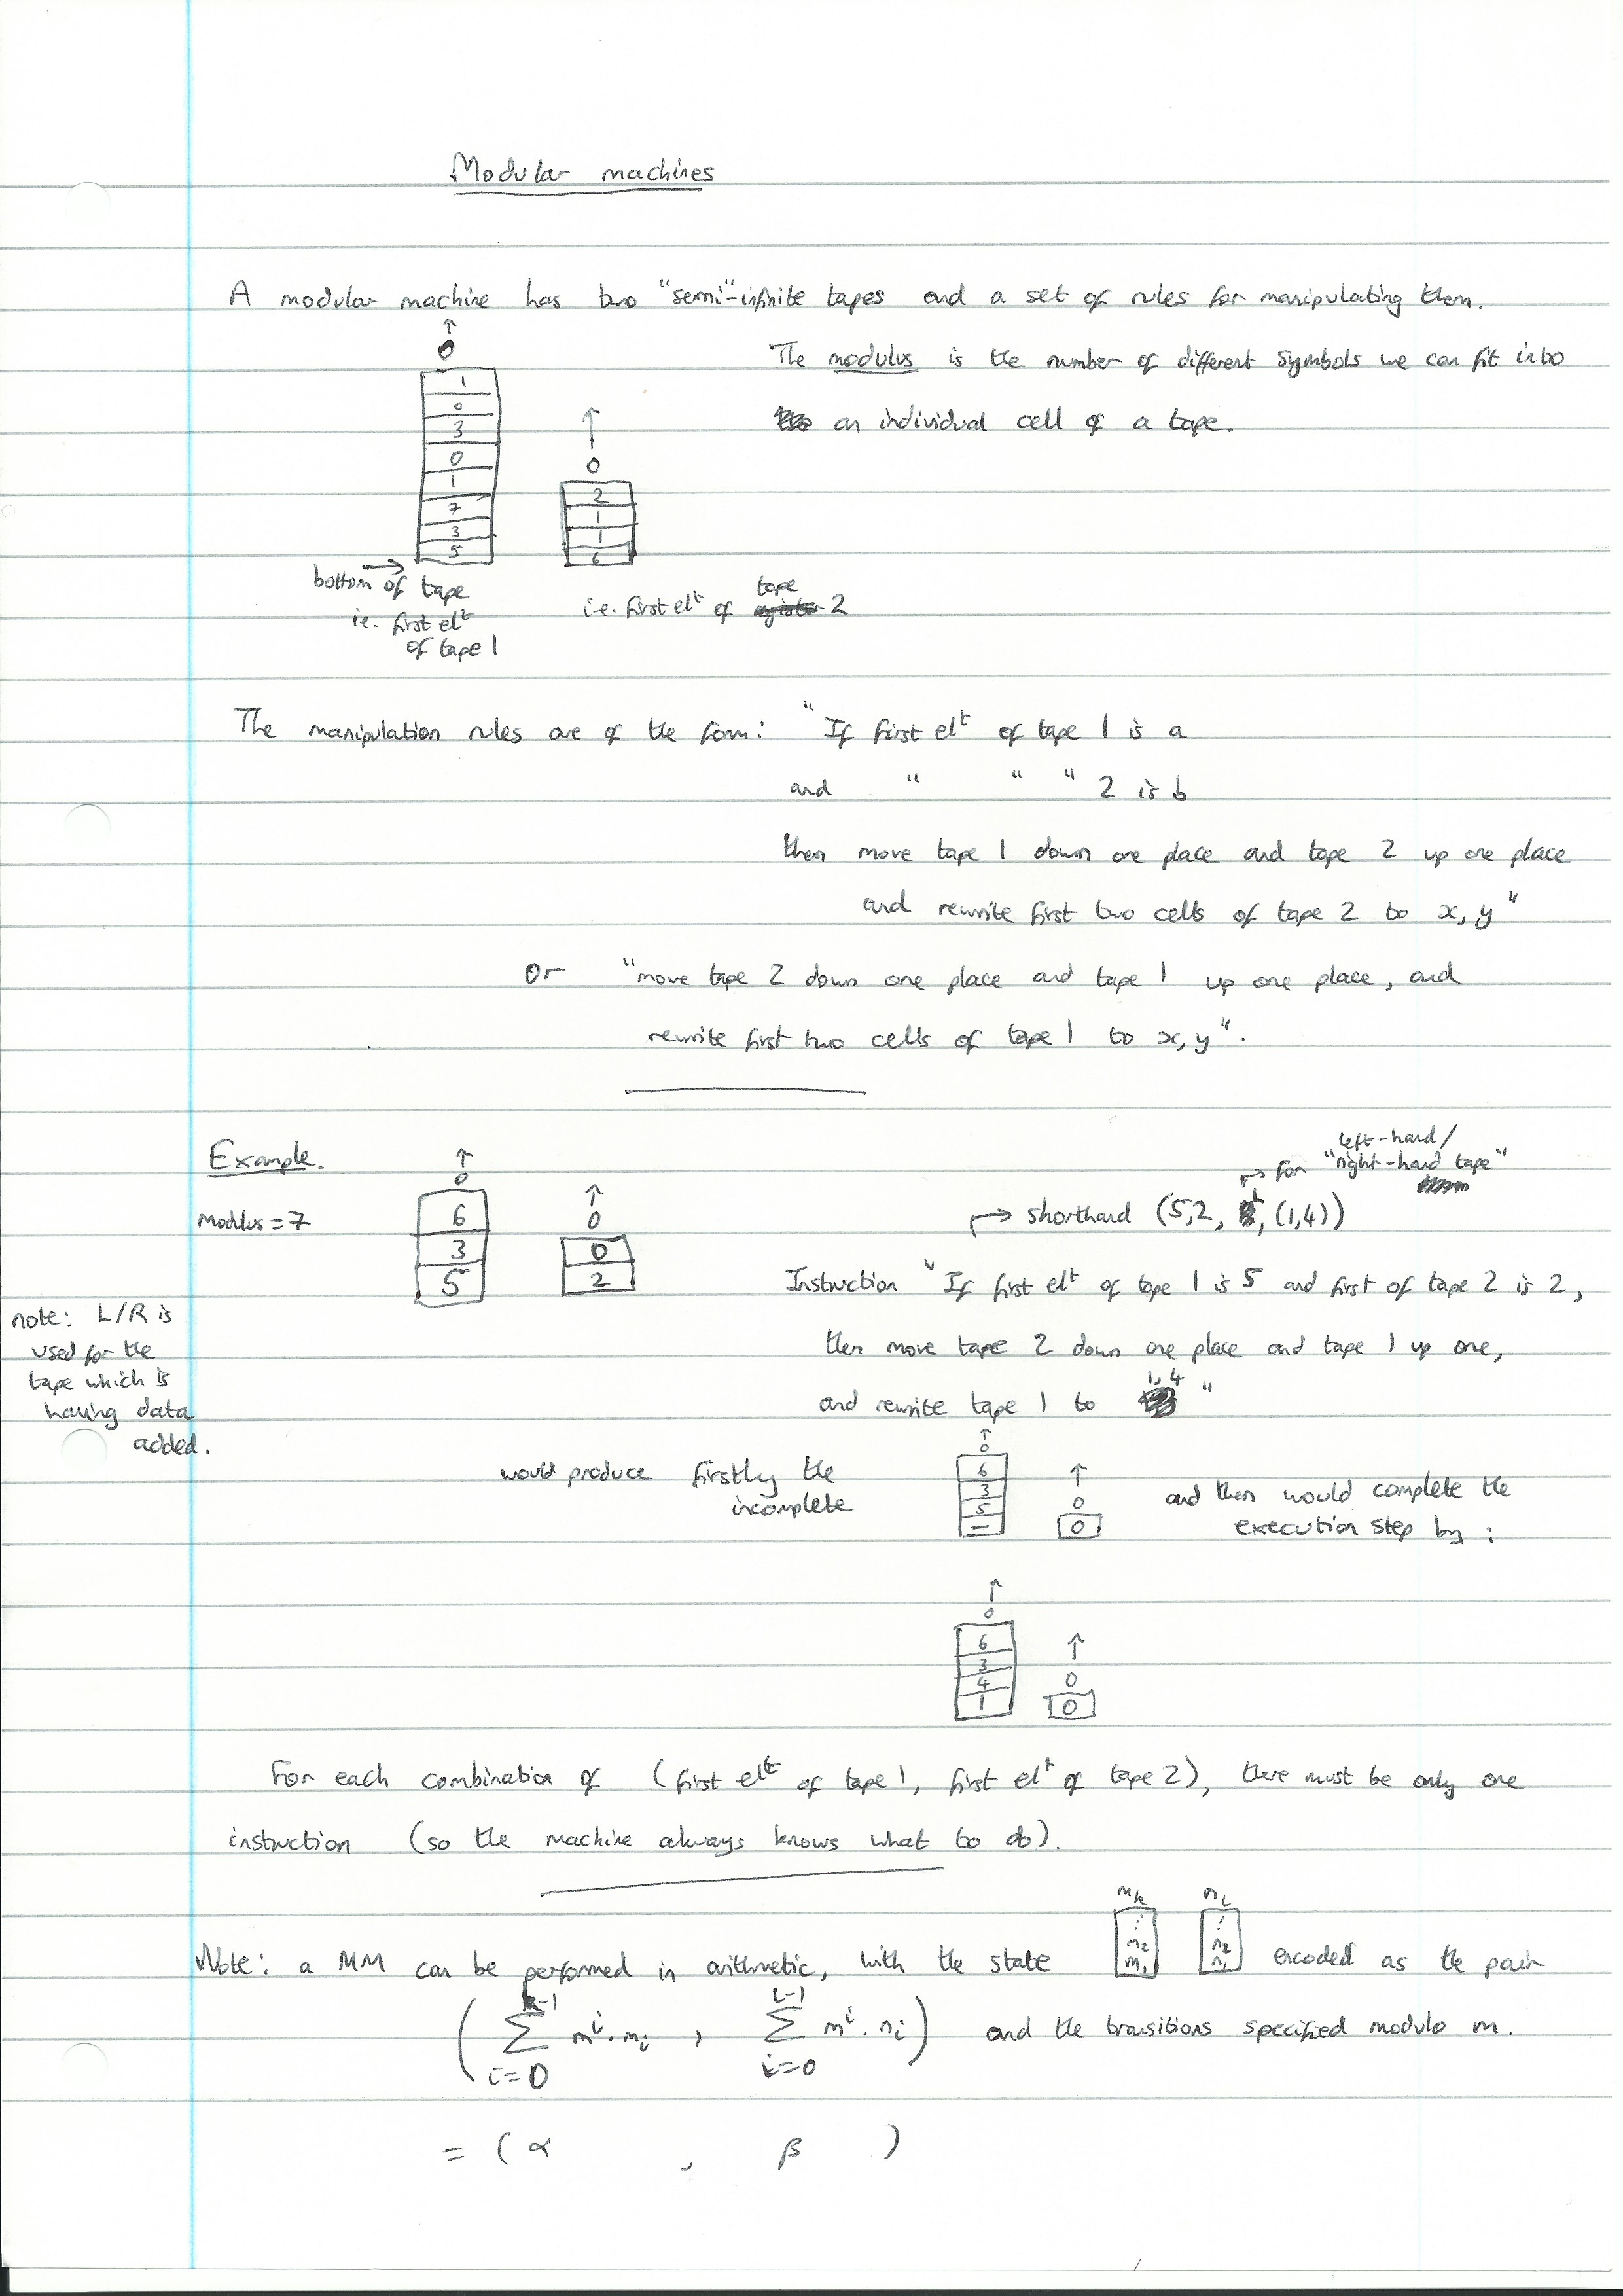 Modular machines
A modular machine has two "semi"-infinite tapes and a set of rules for manipulating them.
↑
0
1
0
3
0
1
7
3
5
↑
0
2
1
1
6
The modulus is the number of different symbols we can fit into
an individual cell of a tape.
bottom of tape
ie. first elt
of tape 1
i.e. first elt of tape 2
The manipulation rules are of the form: "If first elt of tape 1 is a
and " " " 2 is b
then move tape 1 down one place and tape 2 up one place
and rewrite first two cells of tape 2 to x, y"
Or "move tape 2 down one place and tape 1 up one place, and
rewrite first two cells of tape 1 to x, y".
Example.
modulus = 7
↑
0
6
3
5
↑
0
0
2
left-hand/
→ for "right-hand tape"
→ shorthand (5,2, L, (1,4))
Instruction "If first elt of tape 1 is 5 and first of tape 2 is 2,
then move tape 2 down one place and tape 1 up one,
and rewrite tape 1 to 1,4 "
note: L/R is
used for the
tape which is
having data
added.
would produce firstly the
incomplete
↑
0
6
3
5
–
↑
0
0
and then would complete the
execution step by:
↑
0
6
3
4
1
↑
0
0
For each combination of (first elt of tape 1, first elt of tape 2), there must be only one
instruction (so the machine always knows what to do).
Note: a MM can be performed in arithmetic, with the state
mk
⋮
m2
m1
nl
⋮
n2
n1
encoded as the pair
( k-1 ∑ i=0 m^i . mi , l-1 ∑ i=0 m^i . ni ) and the transitions specified modulo m.
= (α , β )